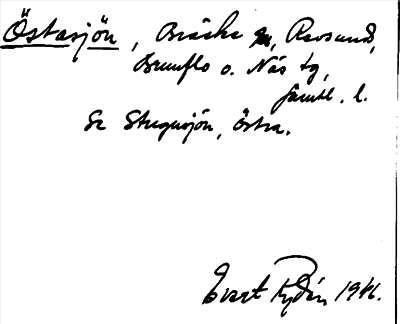 Östasjön, Bräcke, Revsund,
Brunflo o. Näs tg,
Jämtl. l.
Se Stugusjön, Östra.
Evert Rydén 1946.